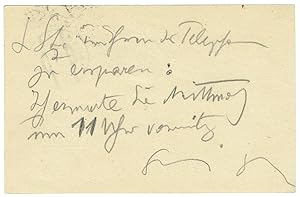 L. St. um Ihnen das Telephon
zu ersparen:
Ich erwarte Sie Mittwoch
um 11 Uhr vormittg